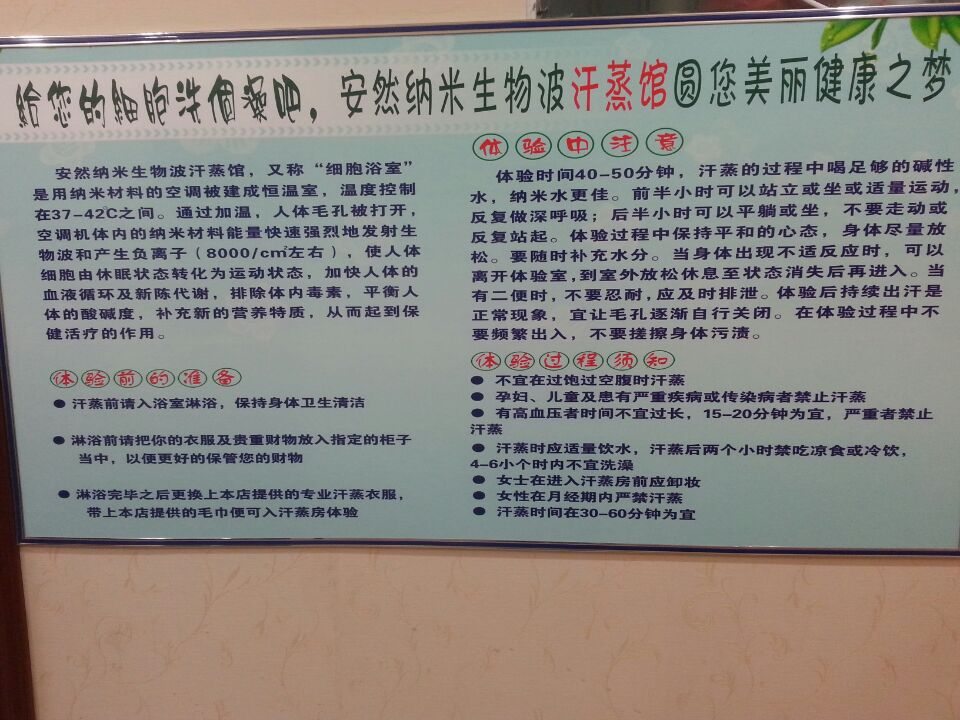 给您的细胞洗个澡吧,安然纳米生物波汗蒸馆圆您美丽健康之梦
安然纳米生物波汗蒸馆,又称“细胞浴室”
是用纳米材料的空调被建成恒温室,温度控制
在37-42℃之间。通过加温,人体毛孔被打开,
空调机体内的纳米材料能量快速强烈地发射生
物波和产生负离子(8000/cm²左右),使人体
细胞由休眠状态转化为运动状态,加快人体的
血液循环及新陈代谢,排除体内毒素,平衡人
体的酸碱度,补充新的营养特质,从而起到保
健活疗的作用。
体验前的准备
● 汗蒸前请入浴室淋浴,保持身体卫生清洁
● 淋浴前请把你的衣服及贵重财物放入指定的柜子
当中,以便更好的保管您的财物
● 淋浴完毕之后更换上本店提供的专业汗蒸衣服,
带上本店提供的毛巾便可入汗蒸房体验
体验中注意
体验时间40-50分钟,汗蒸的过程中喝足够的碱性
水,纳米水更佳。前半小时可以站立或坐或适量运动,
反复做深呼吸;后半小时可以平躺或坐,不要走动或
反复站起。体验过程中保持平和的心态,身体尽量放
松。要随时补充水分。当身体出现不适反应时,可以
离开体验室,到室外放松休息至状态消失后再进入。当
有二便时,不要忍耐,应及时排泄。体验后持续出汗是
正常现象,宜让毛孔逐渐自行关闭。在体验过程中不
要频繁出入,不要搓擦身体污渍。
体验过程须知
● 不宜在过饱过空腹时汗蒸
● 孕妇、儿童及患有严重疾病或传染病者禁止汗蒸
● 有高血压者时间不宜过长,15-20分钟为宜,严重者禁止
汗蒸
● 汗蒸时应适量饮水,汗蒸后两个小时禁吃凉食或冷饮,
4-6小个时内不宜洗澡
● 女士在进入汗蒸房前应卸妆
● 女性在月经期内严禁汗蒸
● 汗蒸时间在30-60分钟为宜